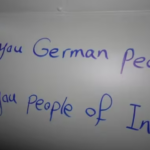 you German
you people of